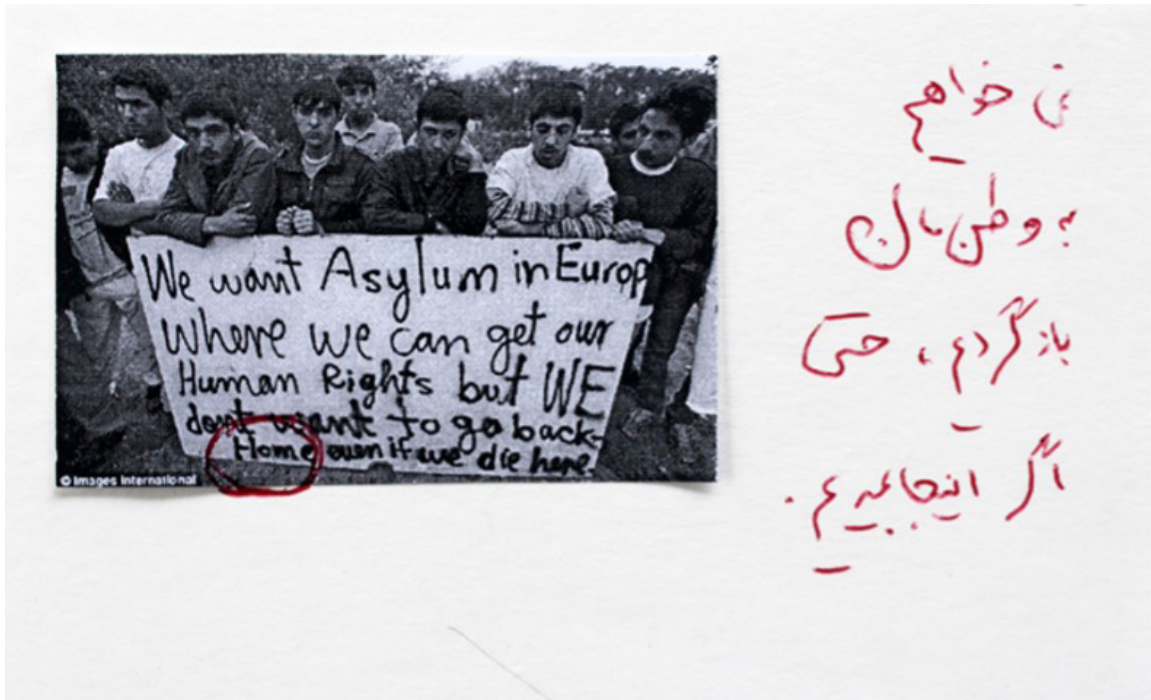 We want Asylum in Europ
Where we can get our
Human Rights but WE
dont want to go back-
Home even if we die here.
© Images International
نمی خواهم
به وطن مان
بازگردم ، حتی
اگر اینجا بمیرم .